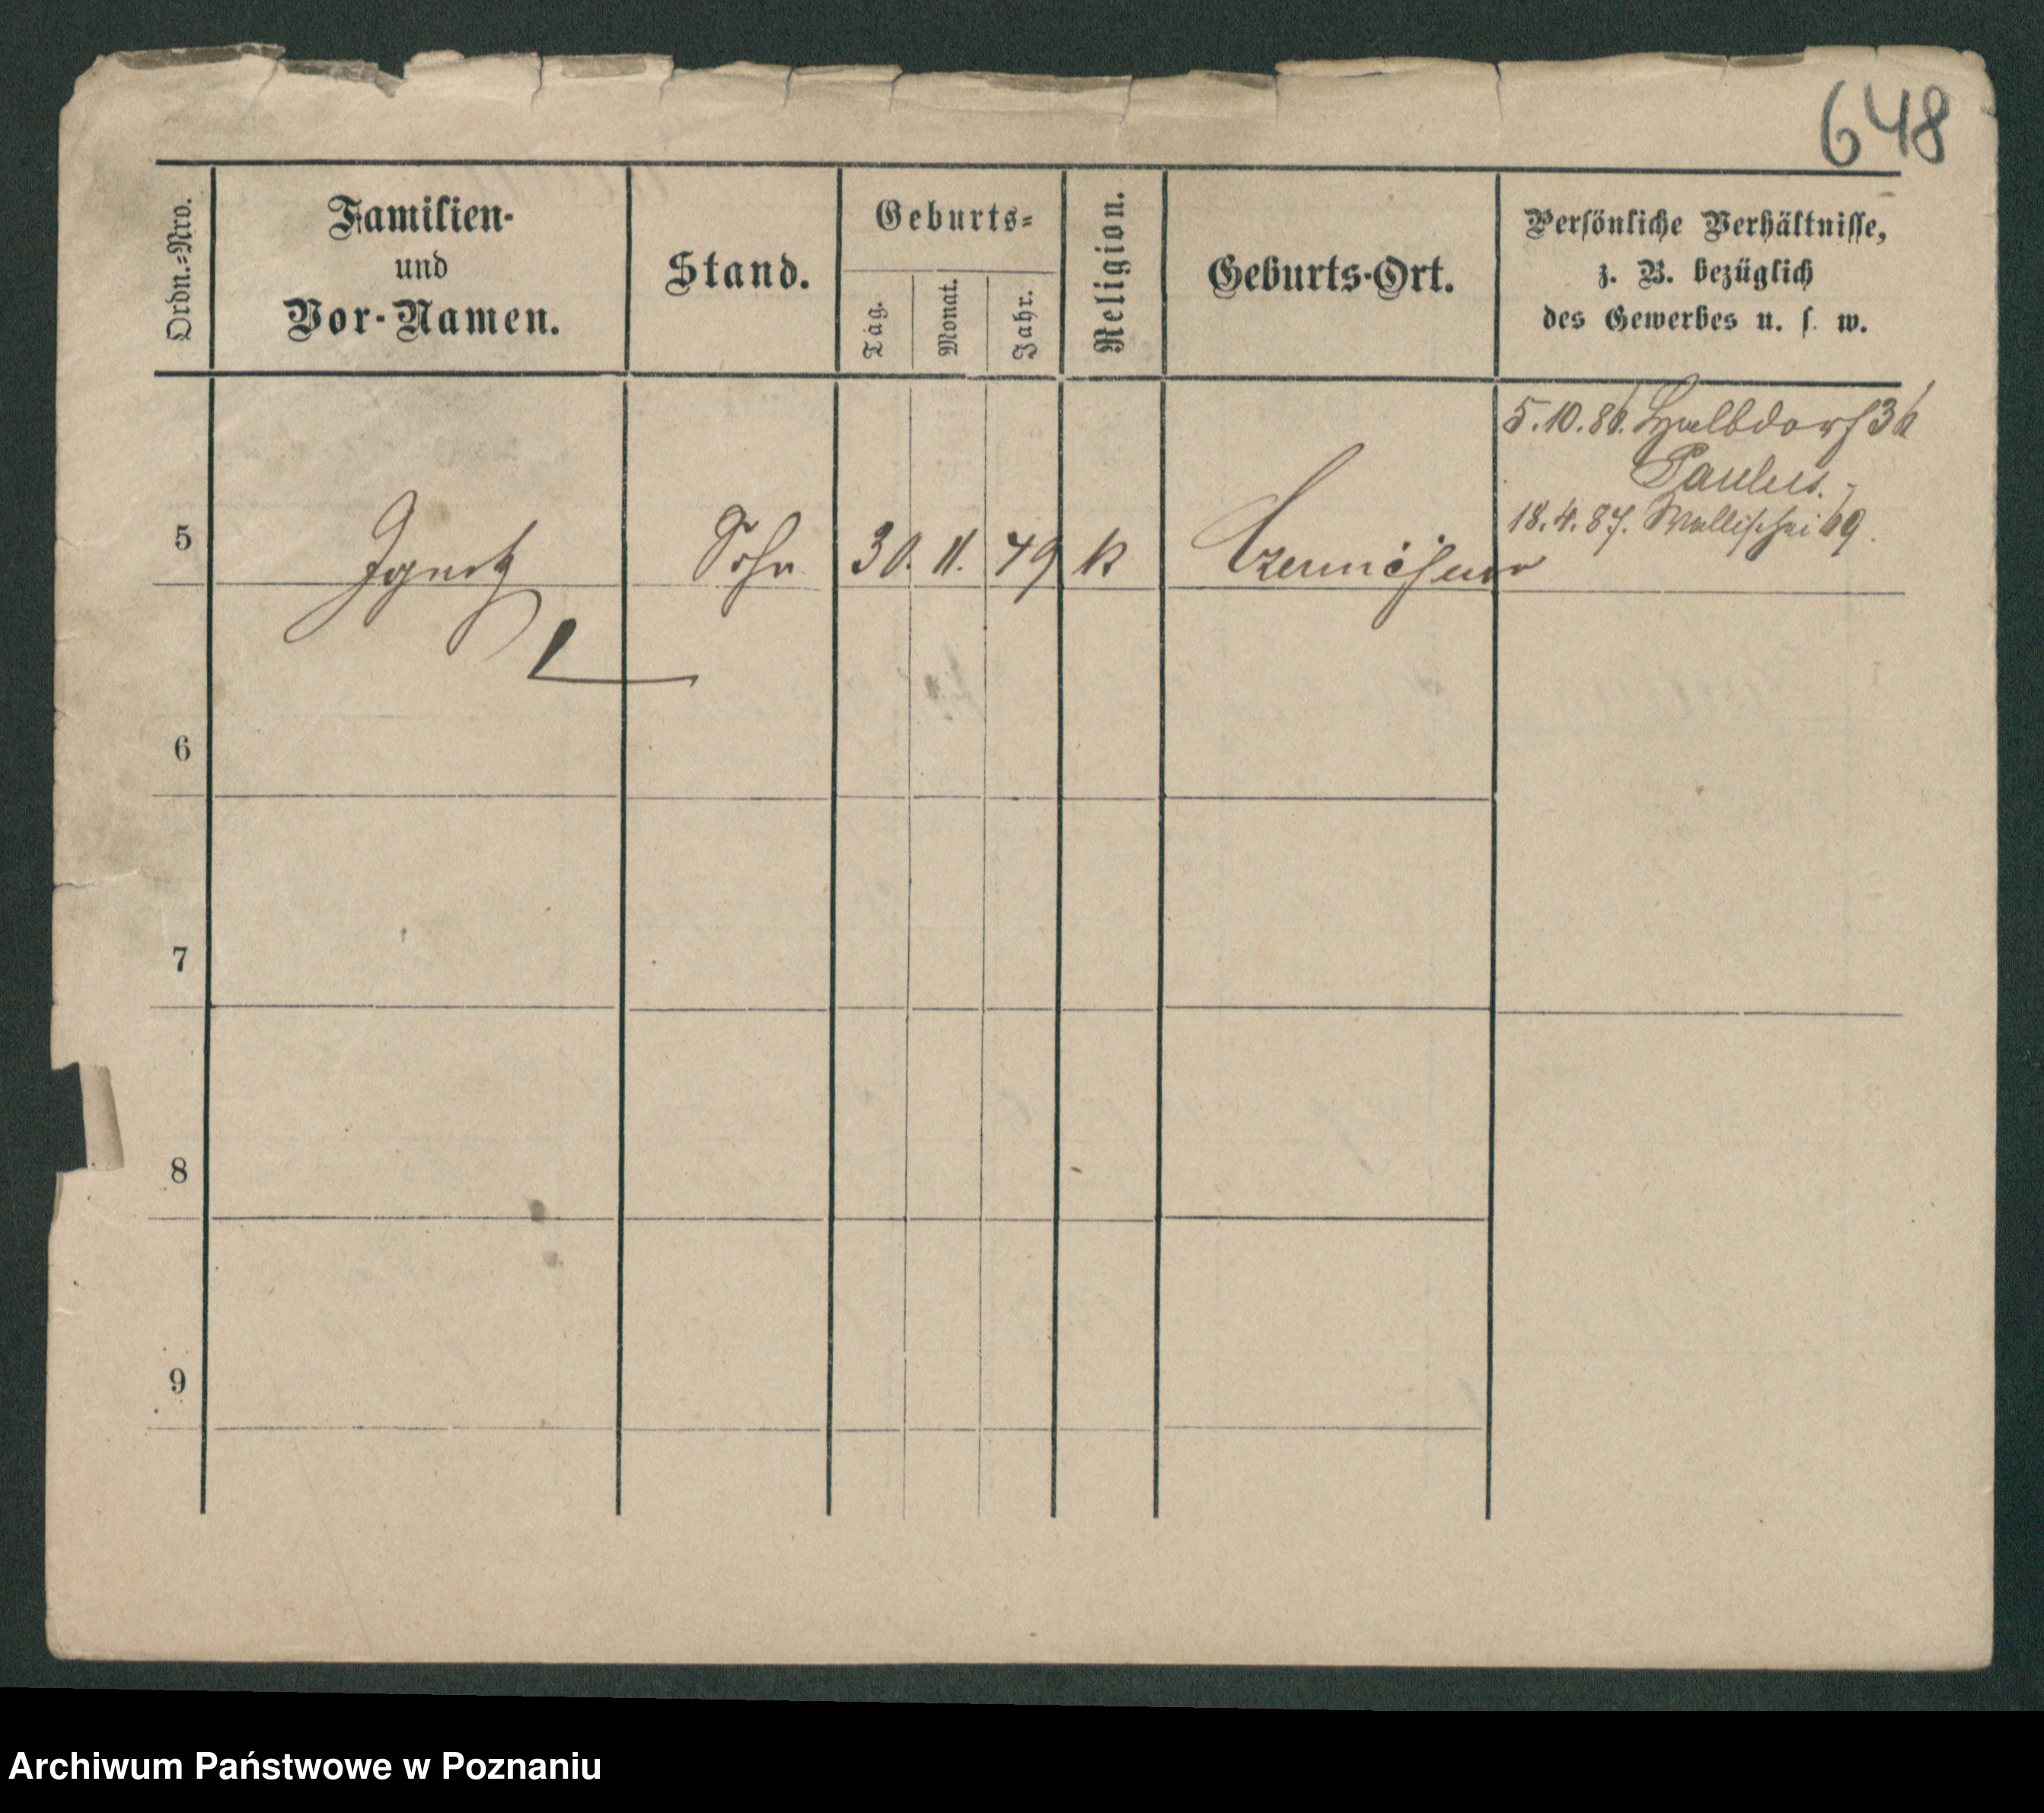 648
Ordn.=Nro.
Familien-
und
Vor-Namen.
Stand.
Geburts=
Tag.
Monat.
Jahr.
Religion.
Geburts-Ort.
Persönliche Verhältnisse,
z. B. bezüglich
des Gewerbes u. s. w.
5.10.86. Halbdorf 36
Paulus.
18.4.87. Wallischei 69.
5
Ignatz
Sohn
30. 11. 79 k
6
7
8
9
Archiwum Państwowe w Poznaniu